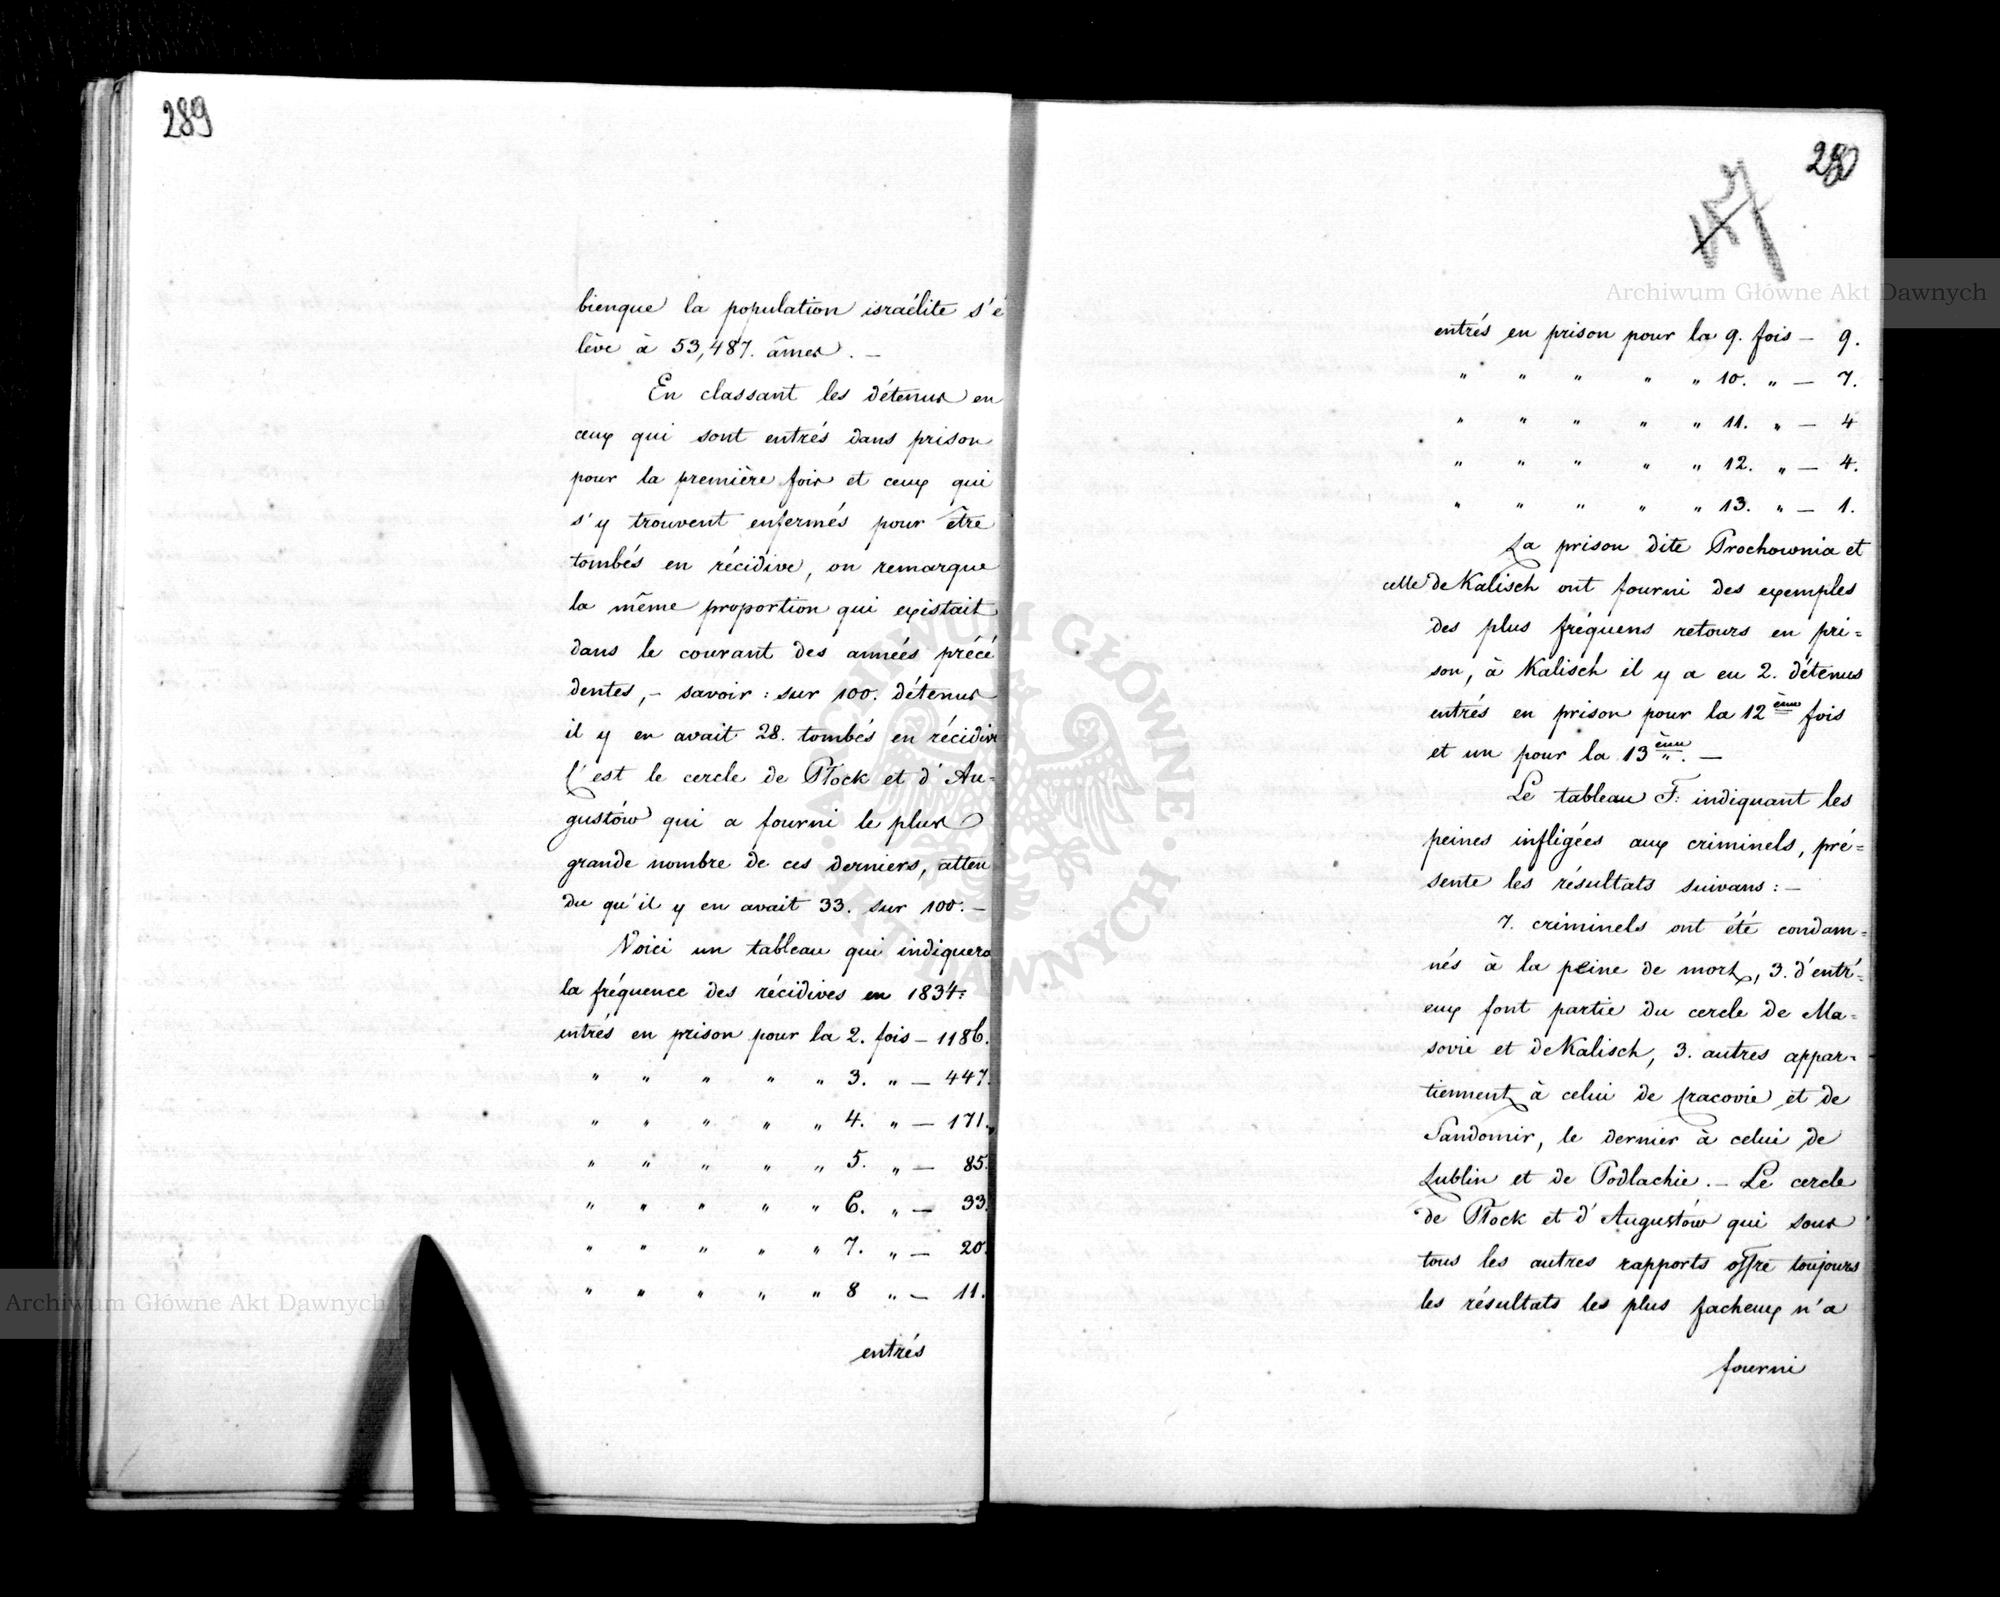 289
bienque la population israélite s'é
lève à 53,487. âmes. —
En classant les détenus en
ceux qui sont entrés dans prison
pour la première fois et ceux qui
s'y trouvent enfermés pour être
tombés en récidive, on remarque
la même proportion qui existait
dans le courant des années précé
dentes, — savoir : sur 100. détenus
il y en avait 28. tombés en récidive
C'est le cercle de Płock et d'Au-
gustów qui a fourni le plus
grande nombre de ces derniers, atten
du qu'il y en avait 33. sur 100. —
Voici un tableau qui indiquera
la fréquence des récidives en 1834:
entrés en prison pour la 2. fois — 1186.
" " " " " 3. " — 447.
" " " " " 4. " — 171.
" " " " " 5. " — 85.
" " " " " 6. " — 33.
" " " " " 7. " — 20.
" " " " " 8 " — 11.
entrés
157
entrés en prison pour la 9. fois — 9.
" " " " " 10. " — 7.
" " " " " 11. " — 4
" " " " " 12. " — 4.
" " " " " 13. " — 1.
La prison dite Prochownia et
celle de Kalisch ont fourni des exemples
des plus fréquens retours en pri=
son, à Kalisch il y a eu 2. détenus
entrés en prison pour la 12ème fois
et un pour la 13ème. —
Le tableau F: indiquant les
peines infligées aux criminels, pré=
sente les résultats suivans : —
7. criminels ont été condam=
nés à la peine de mort, 3. d'entr'=
eux font partie du cercle de Ma=
sovie et de Kalisch, 3. autres appar=
tiennent à celui de Cracovie et de
Sandomir, le dernier à celui de
Lublin et de Podlachie. — Le cercle
de Płock et d'Augustów qui sous
tous les autres rapports offre toujours
les résultats les plus facheux n'a
fourni
Archiwum Główne Akt Dawnych
Archiwum Główne Akt Dawnych
ARCHIWUM GŁÓWNE AKT DAWNYCH